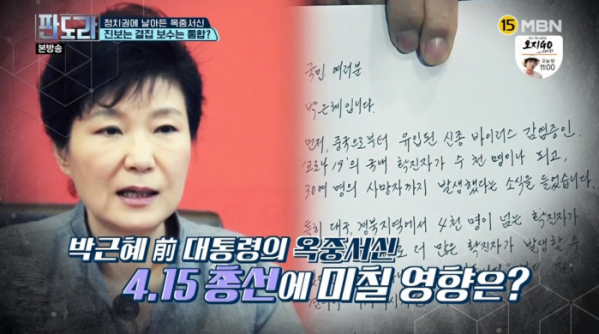 판도라
본방송
정치권에 날아든 옥중서신
진보는 결집 보수는 통합?
15 MBN
오지GO
오늘 밤
11:00
국민 여러분
박근혜입니다.
먼저, 중국으로부터 유입된 신종 바이러스 감염증인,
'코로나 19'의 국내 확진자가 수 천 명이나 되고,
30여 명의 사망자까지 발생했다는 소식을 들었습니다.
특히 대구, 경북지역에서 4천 명이 넘는 확진자가
로 더 많은 확진자가 발생할 수
박근혜 前 대통령의 옥중서신
4.15 총선에 미칠 영향은?